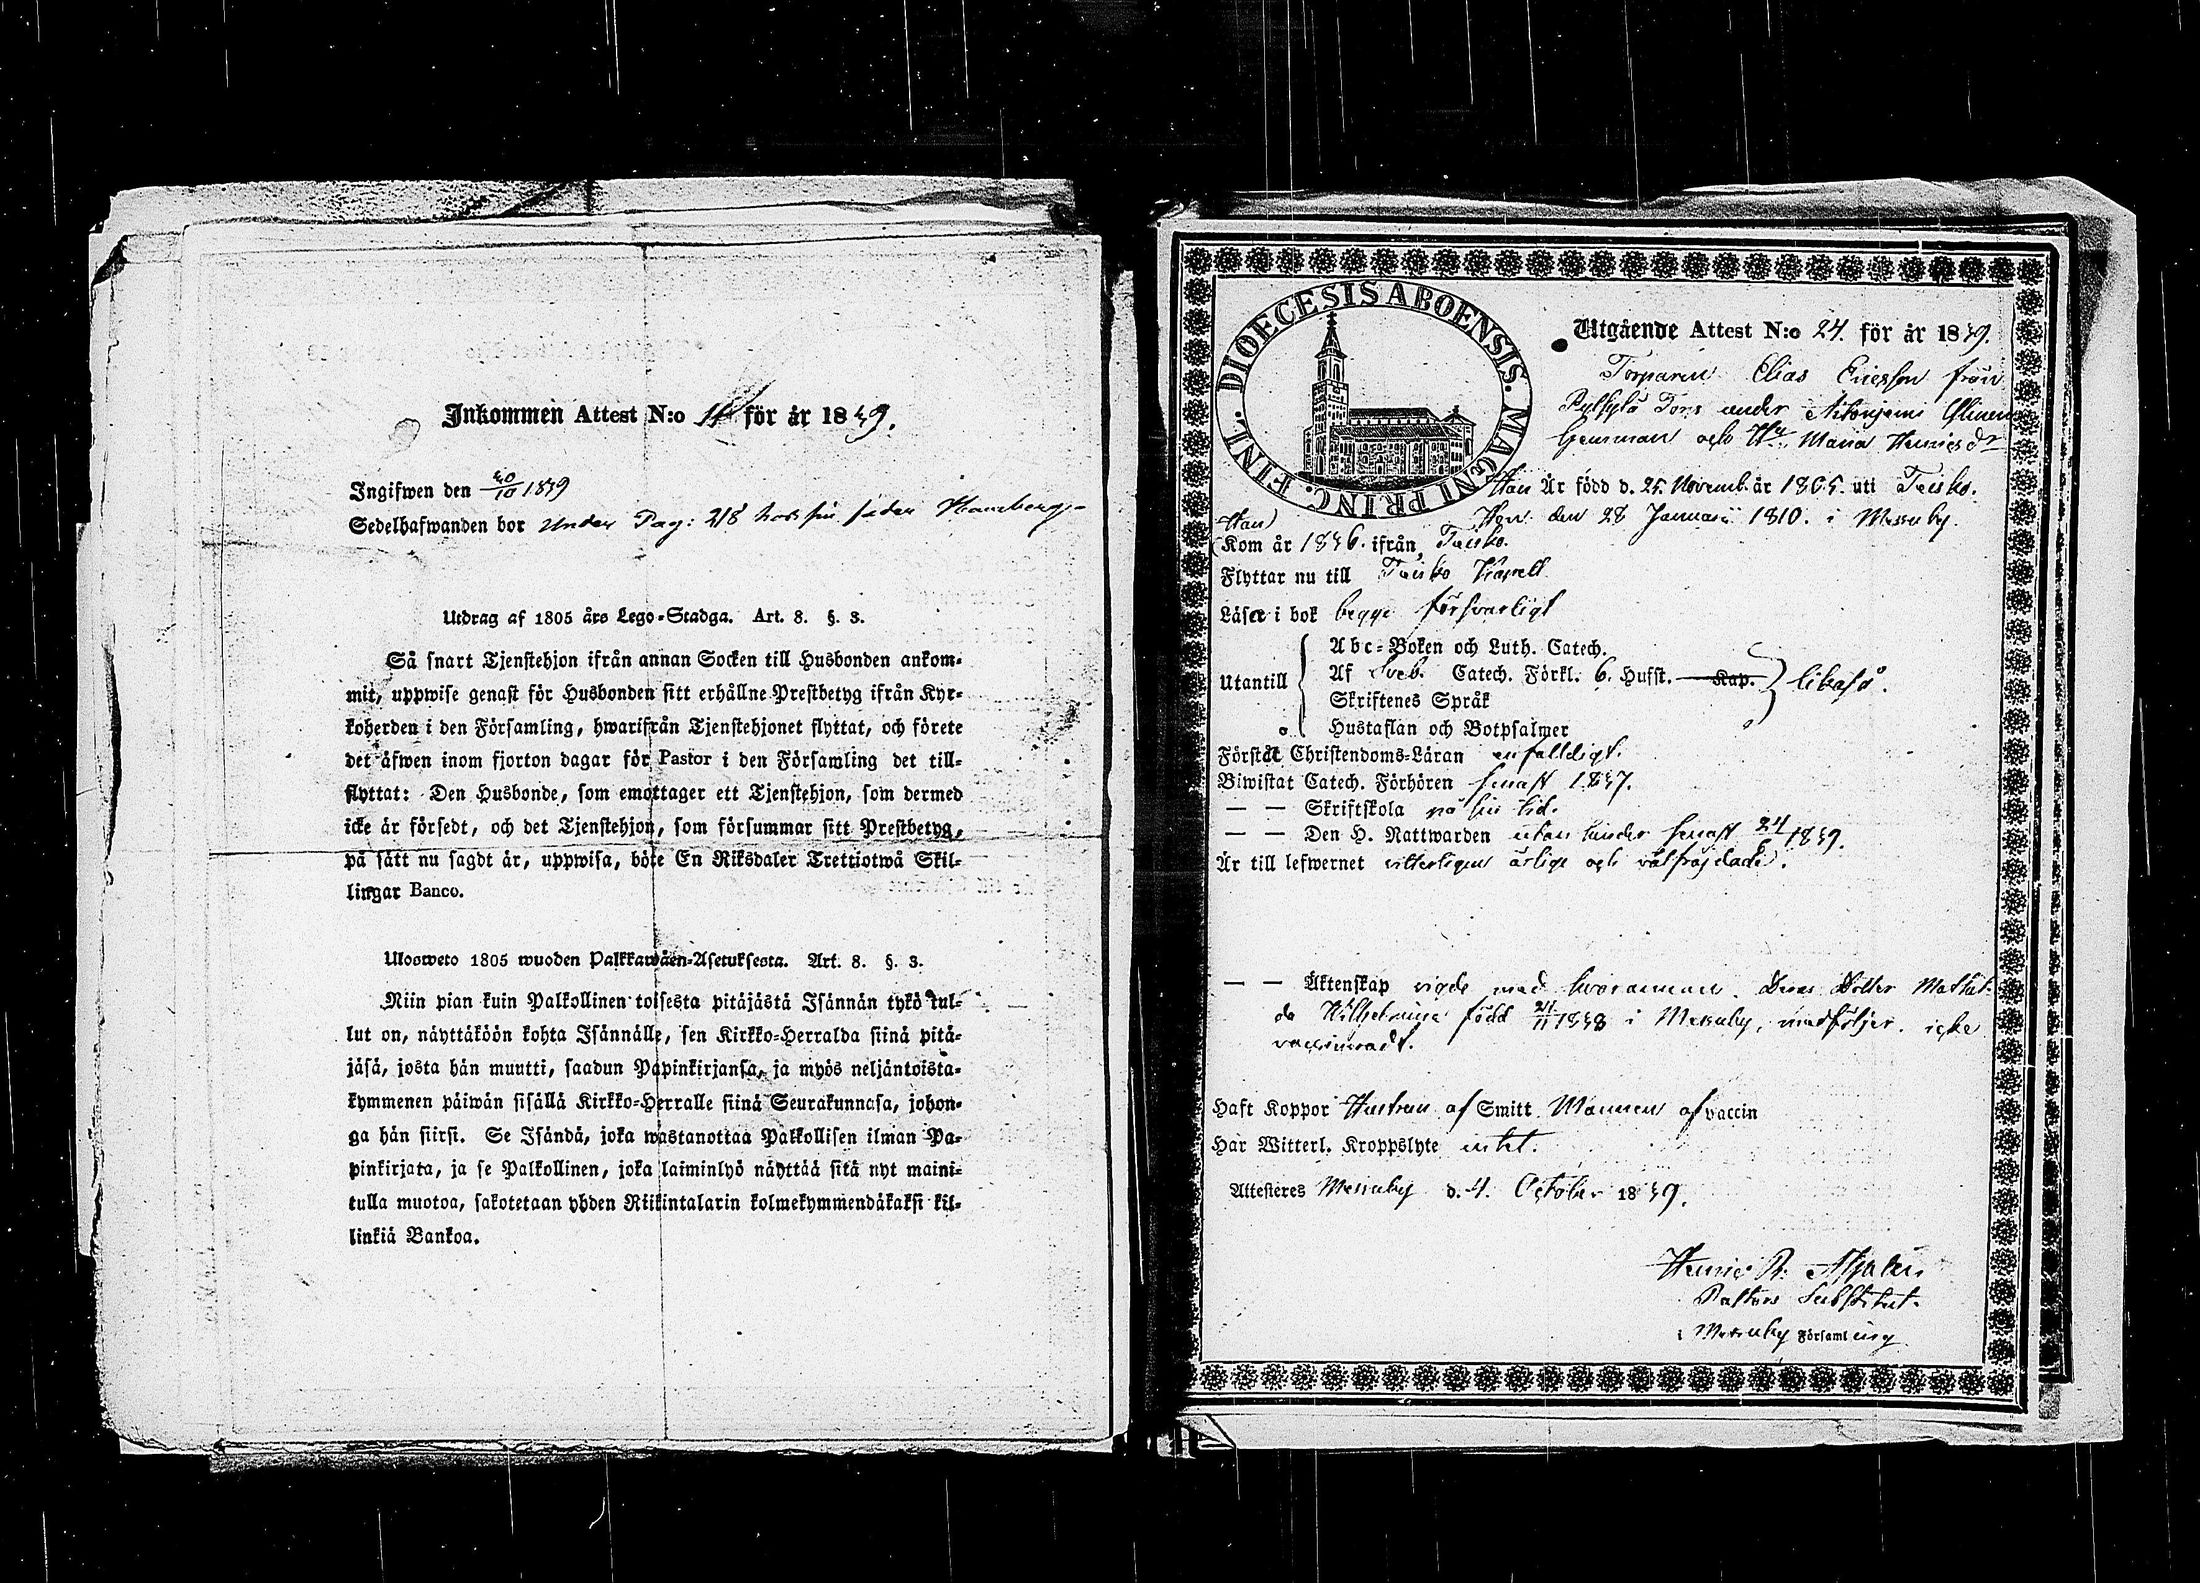 Inkommen Attest N:o 11 för år 1849.
Ingifwen den 20/10 1849
Sedelhafwanden bor under Pag: 218 hos sin fader
Utdrag af 1805 års Lego-Stadga. Art. 8. §. 3.
Så snart Tjenstehjon ifrån annan Socken till Husbonden ankom-
mit, uppwise genast för Husbonden sitt erhållne Prestbetyg ifrån Kyr-
koherden i den Församling, hwarifrån Tjenstehjonet flyttat, och förete
det äfwen inom fjorton dagar för Pastor i den Församling det till-
flyttat: Den Husbonde, som emottager ett Tjenstehjon, som dermed
icke är försedt, och det Tjenstehjon, som försummar sitt Prestbetyg,
på sätt nu sagdt är, uppwisa, böte En Riksdaler Trettiotwå Skil-
lingar Banco.
Ulosweto 1805 wuoden Palkkawäen-Asetuksesta. Art. 8. §. 3.
Niin pian kuin Palkollinen toisesta pitäjästä Isännän tykö tul-
lut on, näyttäköön kohta Isännälle, sen Kirkko-Herralda siinä pitä-
jäsä, josta hän muutti, saadun Papinkirjansa, ja myös neljäntoista-
kymmenen päiwän sisällä Kirkko-Herralle siinä Seurakunnasa, johon-
ga hän siirsi. Se Isändä, joka wastanottaa Palkollisen ilman Pa-
pinkirjata, ja se Palkollinen, joka laiminlyö näyttää sitä nyt maini-
tulla muotoa, sakotetaan yhden Riikintalarin kolmekymmendäkaksi kil-
linkiä Bankoa.
DIOECESIS ABOENSIS. MAGNI PRINC. FINL.
Utgående Attest N:o 24. för år 1849.
Torparen Elias Ericsson från
Torp under
och Hu Maria Henricsdr
Han Är född d. 25. Novemb. år 1805. uti Teisko.
Hon den 28 Januarii 1810. i Messuby.
(Han)
Kom år 1846. ifrån Teisko.
Flyttar nu till Teisko Kapell
Läser i bok begge försvarligt
Utantill
Abc-Boken och Luth. Catech.
Af Sveb. Catech. Förkl. 6. Hufst. Kap. likaså.
Skriftenes Språk
Hustaflan och Botpsalmer
Förstår Christendoms-Läran enfalldigt.
Biwistat Catech. Förhören senast 1847.
— — Skriftskola på sin tid.
— — Den H. Nattwarden utan hinder senast 24/6 1849.
Är till lefwernet witterligen ärlige och wälfräjdade.
— — Äktenskap vigde med hvarannan. Deras Dotter Mathil-
da Wilhelmina född 24/11 1848 i Messuby, medföljer. icke
vaccinerad.
Haft Koppor Hustrun af Smitt Mannen af vaccin
Har Witterl. Kroppslyte intet.
Attesteres Messuby d. 4. October 1849.
Pastors Substitut.
i Messuby Församling